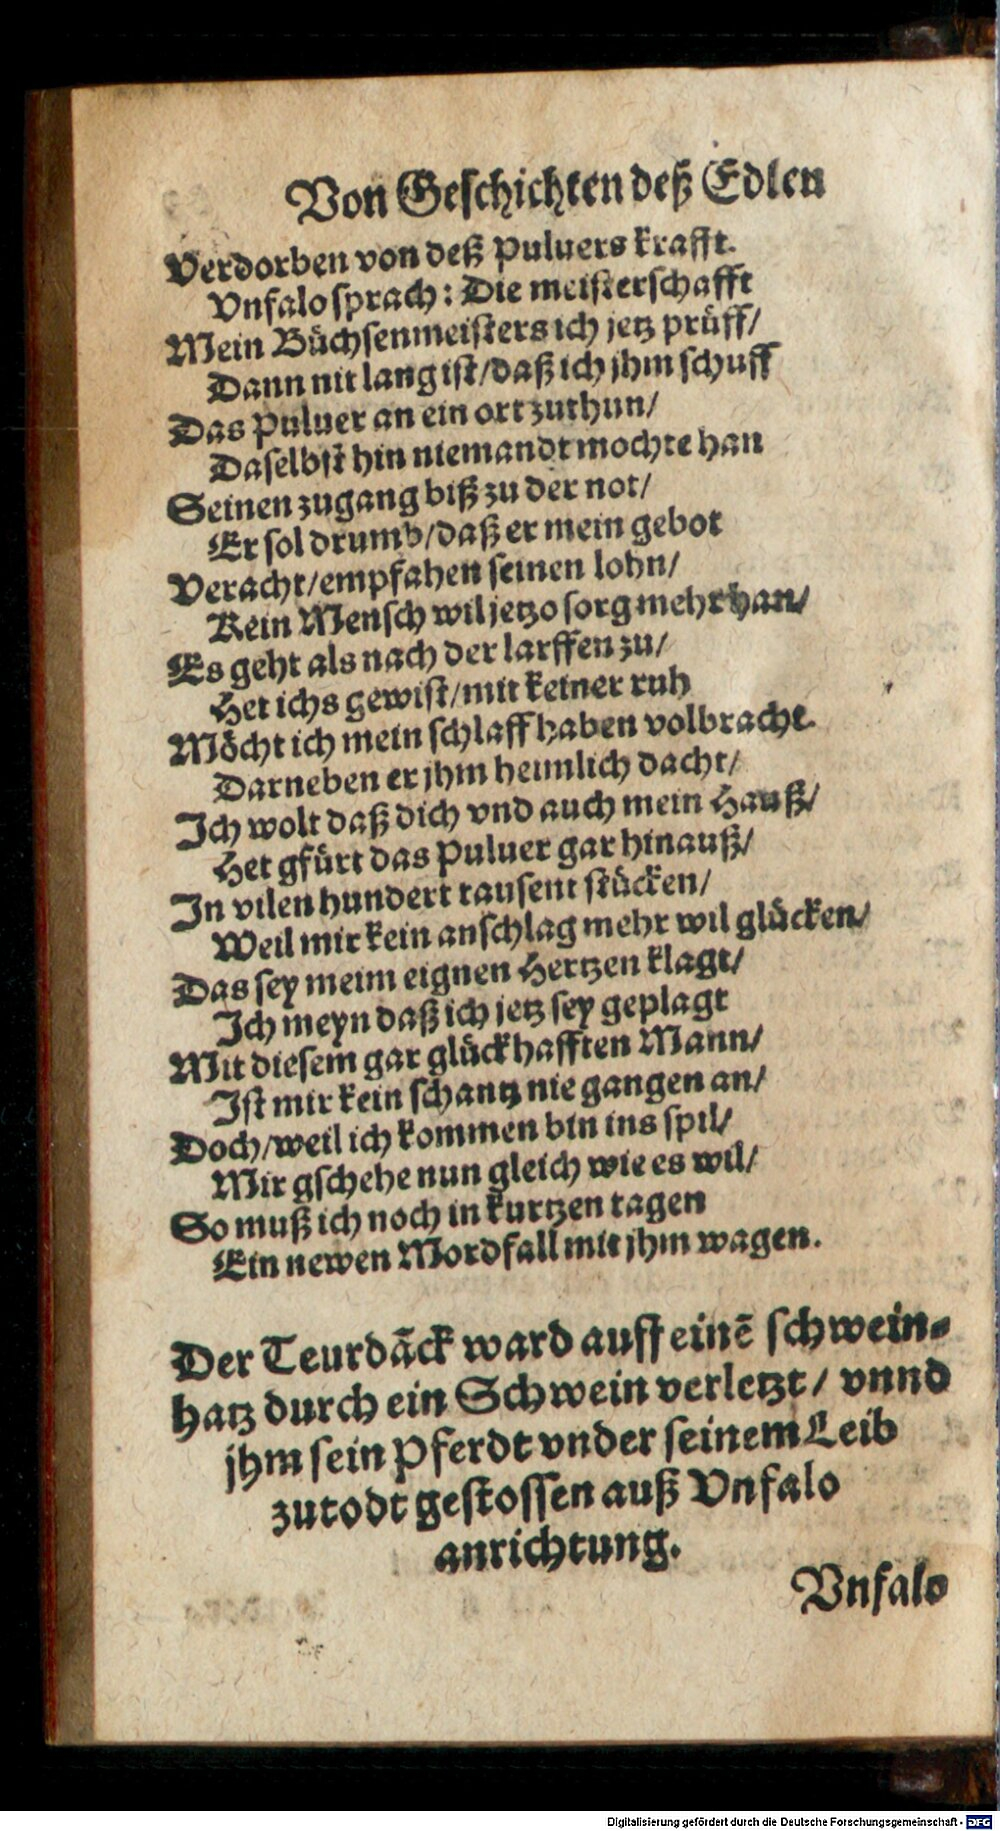 Von Geschichten deß Edlen
Verdorben von deß Puluers krafft.
Vnfalo sprach: Die meisterschafft
Mein Büchsenmeisters ich jetz prüff/
Dann nit lang ist/daß ich jhm schuff
Das Puluer an ein ort zuthun/
Daselbst hin niemandt mochte han
Seinen zugang biß zu der not/
Er sol drumb/daß er mein gebot
Veracht/empfahen seinen lohn/
Kein Mensch wil jetzo sorg mehr han/
Es geht als nach der larffen zu/
Het ichs gewist/mit keiner ruh
Möcht ich mein schlaff haben volbracht.
Darneben er jhm heimlich dacht/
Ich wolt daß dich vnd auch mein Hauß/
Het gfürt das Puluer gar hinauß/
In vilen hundert tausent stücken/
Weil mir kein anschlag mehr wil glücken/
Das sey meim eignen Hertzen klagt/
Ich meyn daß ich jetz sey geplagt
Mit diesem gar glückhafften Mann/
Ist mir kein schantz nie gangen an/
Doch/weil ich kommen bin ins spil/
Mir gschehe nun gleich wie es wil/
So muß ich noch in kurtzen tagen
Ein newen Mordfall mit jhm wagen.
Der Teurdãck ward auff einē schwein-
hatz durch ein Schwein verletzt/ vnnd
jhm sein Pferdt vnder seinem Leib
zutodt gestossen auß Vnfalo
anrichtung.
Vnfalo
Digitalisierung gefördert durch die Deutsche Forschungsgemeinschaft - DFG